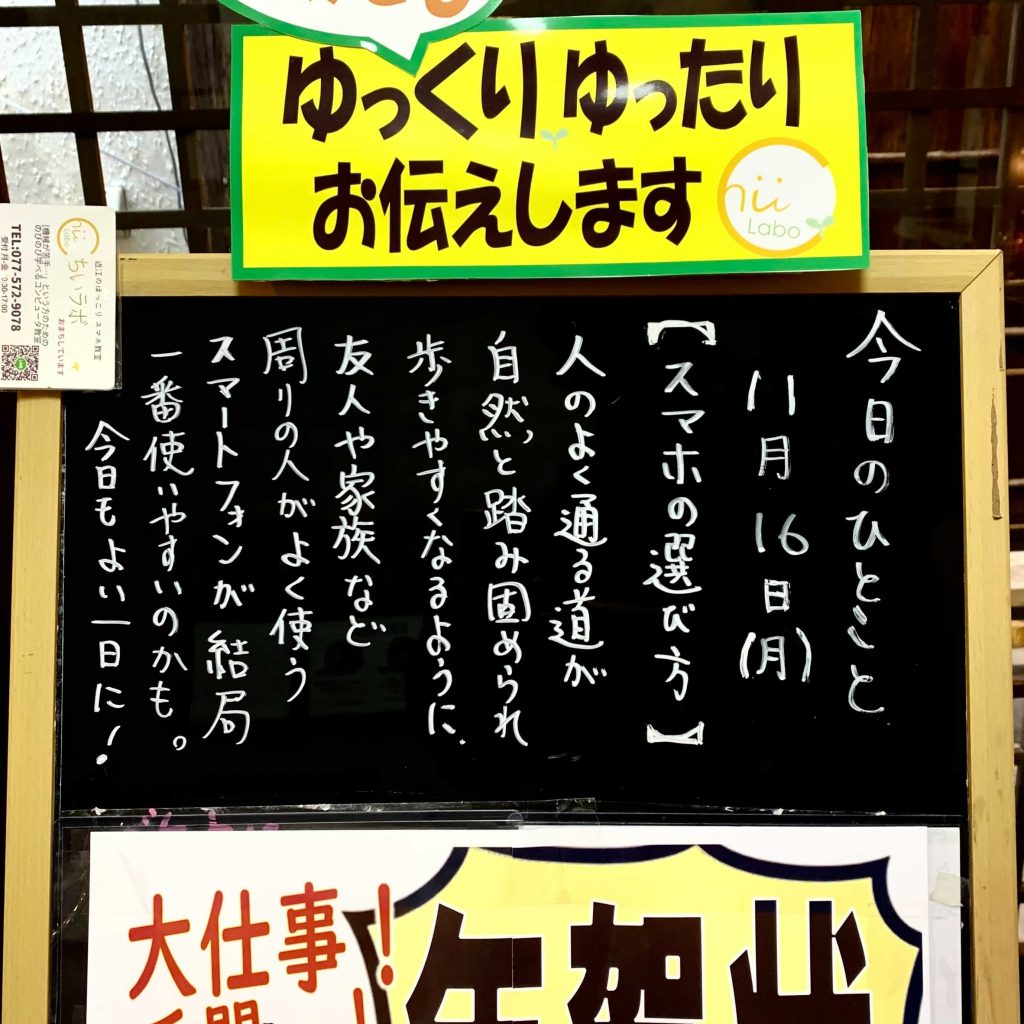 ゆっくりゆったり
お伝えします
hii
Labo
hii
Labo
近江のほっこりスマホ教室
ちいラボ
おまちしています
「機械が苦手…」という方のための
のびのび学べるコンピュータ教室
TEL:077-572-9078
今日のひとこと
11月16日(月)
【スマホの選び方】
人のよく通る道が
自然と踏み固められ
歩きやすくなるように、
友人や家族など
周りの人がよく使う
スマートフォンが結局
一番使いやすいのかも。
今日もよい一日に!
大仕事!
年賀状